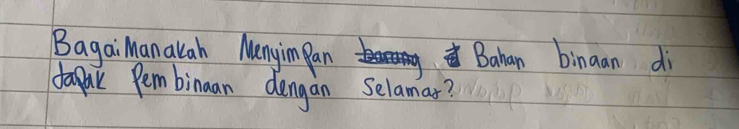 Bagaimanakah Menyimpan barang Bahan binaan di
tapak Pembinaan dengan Selamat?